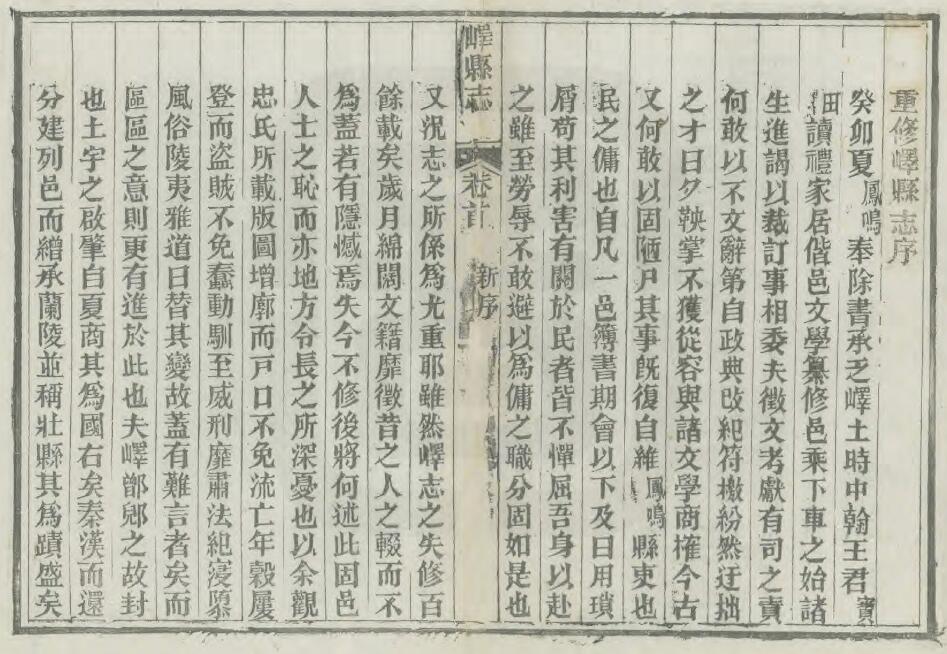 重修嶧縣志序
癸卯夏鳳鳴奉除書承乏嶧土時中翰王君寶
田讀禮家居偕邑文學纂修邑乘下車之始諸
生進謁以裁訂事相委夫徵文考獻有司之責
何敢以不文辭第自政典改紀符檄紛然迂拙
之才日夕鞅掌不獲從容與諸文學商搉今古
又何敢以固陋尸其事旣復自維鳳鳴縣吏也
民之傭也自凡一邑簿書期會以下及日用瑣
屑苟其利害有關於民者皆不憚屈吾身以赴
之雖至勞辱不敢避以爲傭之職分固如是也
嶧縣志
卷首
新序
又況志之所係爲尤重耶雖然嶧志之失修百
餘載矣歲月綿闊文籍靡徵昔之人之輟而不
爲蓋若有隱憾焉失今不修後將何述此固邑
人士之恥而亦地方令長之所深憂也以余觀
忠氏所載版圖增廓而戸口不免流亡年穀屢
登而盜賊不免蠢動馴至威刑靡肅法紀寖隳
風俗陵夷雅道日替其變故蓋有難言者矣而
區區之意則更有進於此也夫嶧鄫郳之故封
也土宇之啟肇自夏商其爲國右矣秦漢而還
分建列邑而繒承蘭陵並稱壯縣其爲蹟盛矣